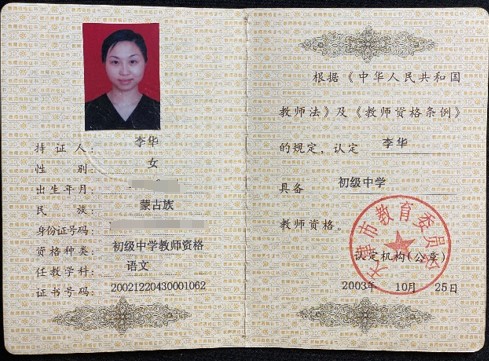 持证人： 李华
性别： 女
出生年月：
民族： 蒙古族
身份证号码：
资格种类： 初级中学教师资格
任教学科： 语文
证书号码： 20021220430001062
根据《中华人民共和国
教师法》及《教师资格条例》
的规定，认定 李华
具备 初级中学
教师资格。
天津市教育委员会
认定机构(公章)
2003年 10月 25日